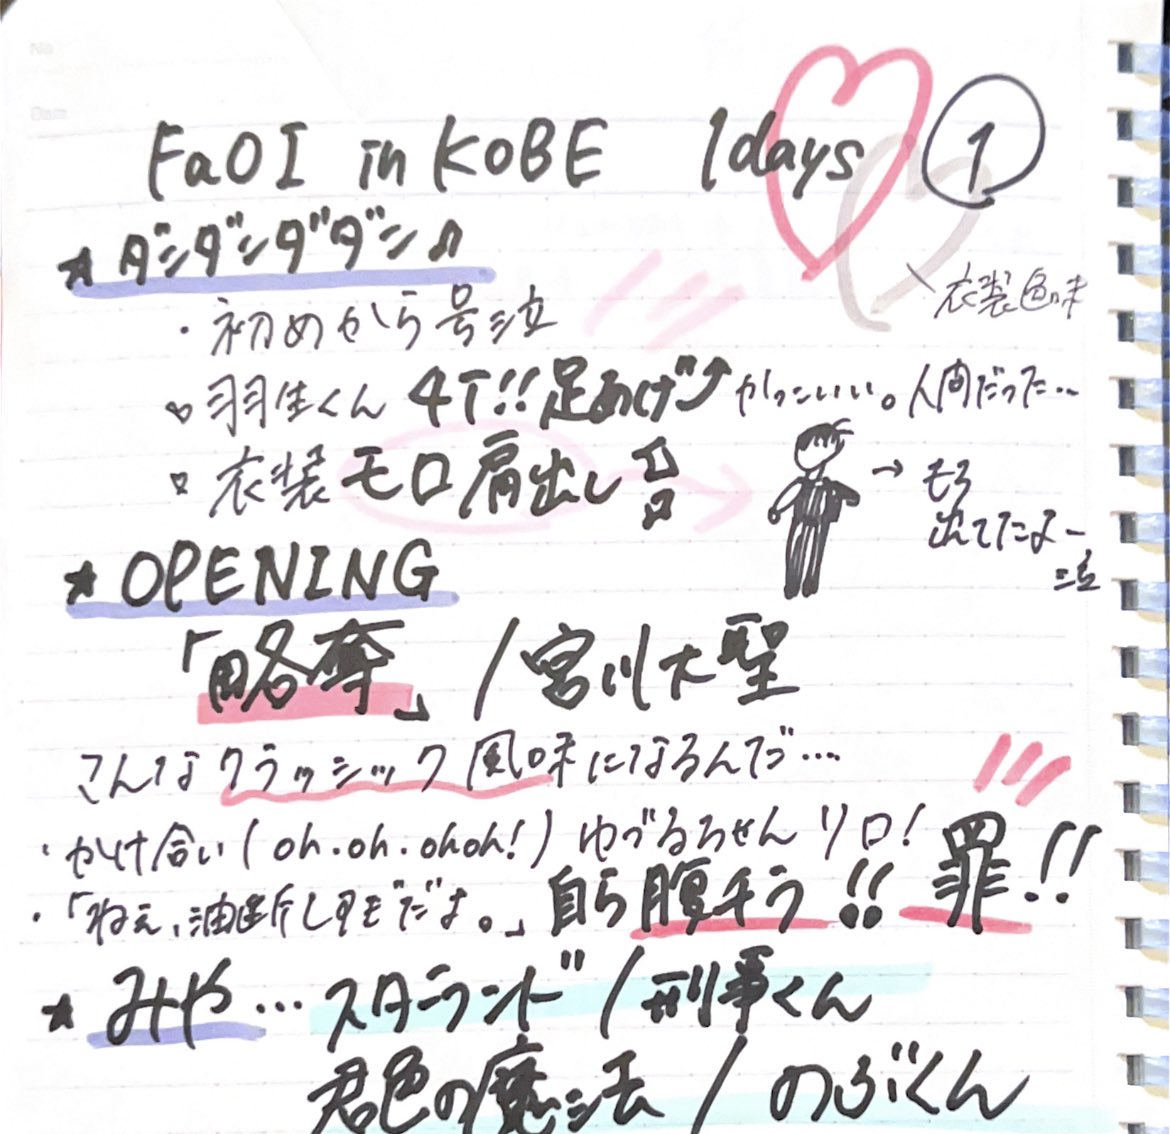 No.
Date
FaOI in KOBE 1days ①
★ダンダンダダン♫
衣装色味
・初めから号泣
◦羽生くん 4T!!足あげ⤴かっこいい。人間だった…
◦衣装モロ肩出し エロ
→モろ
出てたよー
泣
★OPENING
「略奪」/宮川大聖
こんなクラッシック風味になるんだ…
・かけ合い(oh・oh・ohoh!)ゆづるろせんリロ! 罪!!
・「ねぇ、油断しすぎだよ。」自ら腹チラ!!
★みや…スターランド/刑事くん
君色の魔法/のぶくん